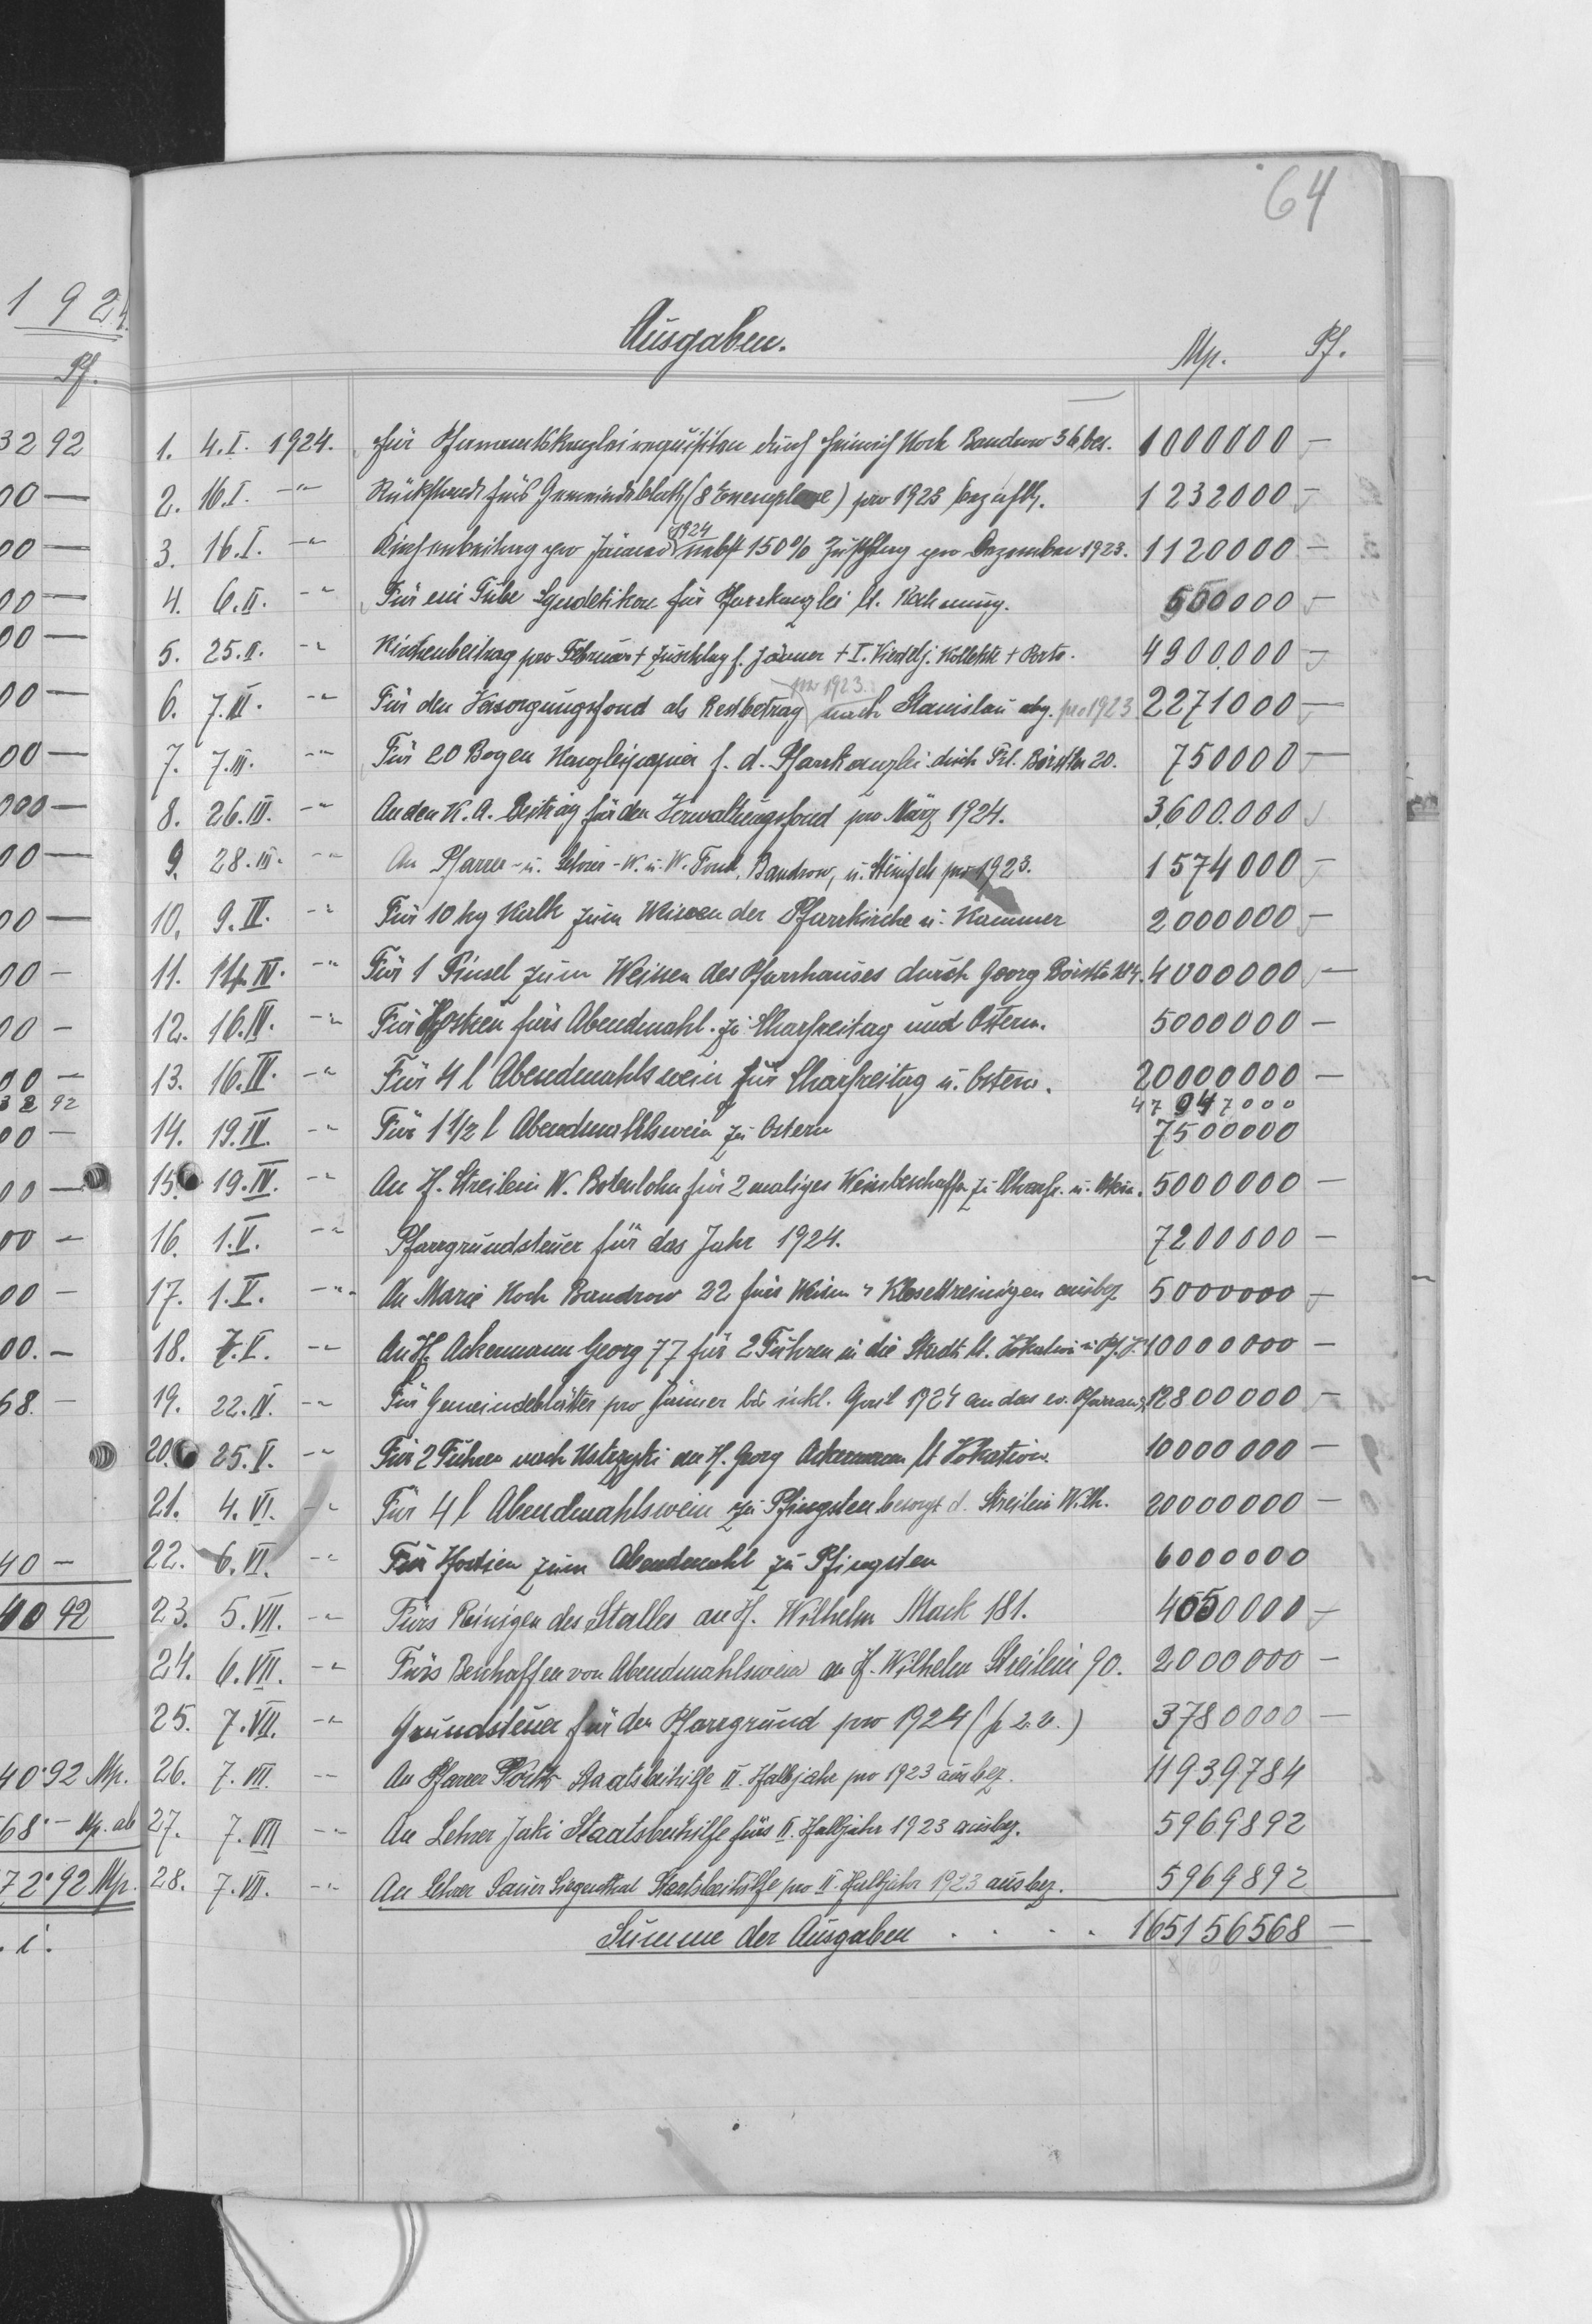 64
1 9 24.
Pf.
Ausgaben.
Mp. Pf.
32 92
1. 4. I. 1924. Für Pfarramtskanzleirequisiten durch Heinrich Koch Bandrow 36 bes. 1000000 –
00 —
2. 16. I. -"- Rückstand fürs Gemeindeblatt (8 Exemplare) pro 1923 bezahlt. 1232000 –
00 —
1924
3. 16. I. -"- Kirchenbeitrag pro Jänner nebst 150% Zuschlag pro Dezember 1923. 1120000 –
00 —
4. 6. II. -"- Für eine Tube Syndetikon für Pfarrkanzlei lt. Rechnung. 000 –
00 —
5. 25. II. -"- Kirchenbeitrag pro Februar + Zuschlag f. Jänner + I. Viertelj. Kollekte + Porto. 4900.000 –
00 —
pro 1923.
6. 7. III. -"- Für den Versorgungsfond als Restbetrag nach Stanislau abg. pro 1923 2271000 —
00 —
7. 7. III. -"- Für 20 Bogen Kanzleipapier f. d. Pfarrkanzlei dch Frl. 20. 750000 —
000 —
8. 26. III. -"- An den K. A. Beitrag für den Verwaltungsfond pro März 1924. 3,600.000
00 —
9. 28. III. -"- An Pfarrer- u. Lehrer-W. u. W. Fond, Bandrow, u. Steinfels pro 1923. 1574000 –
00 —
10. 9. IV. -"- Für 10 kg Kalk zum Weissen der Pfarrkirche u. Kammer 2000000 –
00 –
11. 14. IV. -"- Für 1 Pinsel zum Weissen des Pfarrhauses durch Georg 4000000 —
00 –
12. 16. IV. -"- Für Hostien fürs Abendmahl zu Charfreitag und Ostern. 5000000 –
00 –
13. 16. IV. -"- Für 4 l Abendmahlswein für Charfreitag u. Ostern. 20000000 –
32 92
47 947000
00 –
14. 19. IV. -"- Für 1 1/2 l Abendmahlswein zu Ostern 7500000
00 —
15. 19. IV. -"- An H. Streilein W. Botenlohn für 2 maliges Weinbeschaffen zu Charfr. u. Ostern. 5000000 –
00 –
16. 1. V. -"- Pfarrgrundsteuer für das Jahr 1924. 7200000 –
00 –
17. 1. V. -"- An Marie Koch Bandrow 22 fürs Weissen u Klosettreinigen ausbez 5000000 –
00. –
18. 7. V. -"- An H. Ackermann Georg 77 für 2 Fuhren in die Stadt lt. 10000000 –
68. –
19. 22. IV. -"- Für Gemeindeblätter pro Jänner bis inkl. April 1924 an das ev. Pfarramt 12800000 –
20. 25. V. -"- Für 2 Fuhren nach Ustrzyki an H. Georg Ackermann lt 10000000 –
21. 4. VI. -"- Für 4 l Abendmahlswein zu Pfingsten besorgt d. Streilein Wilh. 20000000 –
40 –
22. 6. VI. -"- Für Hostien zum Abendmahl zu Pfingsten 6000000
40 92
23. 5. VII. -"- Fürs Reinigen des Stalles an H. Wilhelm Mack 181. 4550000 –
24. 6. VII. -"- Fürs Beschaffen von Abendmahlswein an H. Wilhelm Streilein 90. 2000000 –
25. 7. VII. -"- Grundsteuer für den Pfarrgrund pro 1924 3780000 –
40·92 Mp.
26. 7. VII. -"- An Pfarrer Staatsbeihilfe II. Halbjahr pro 1923 ausbez. 11939784
68·– Mp. ab
27. 7. VII -"- An Lehrer Jaki Staatsbeihilfe fürs II. Halbjahr 1923 ausbez. 5969892
72·92 Mp.
28. 7. VII. -"- An Lehrer Sauer Siegenthal Staatsbeihilfe pro II. Halbjahr 1923 ausbez. 5969892
Summe der Ausgaben . . . . 165156568 –